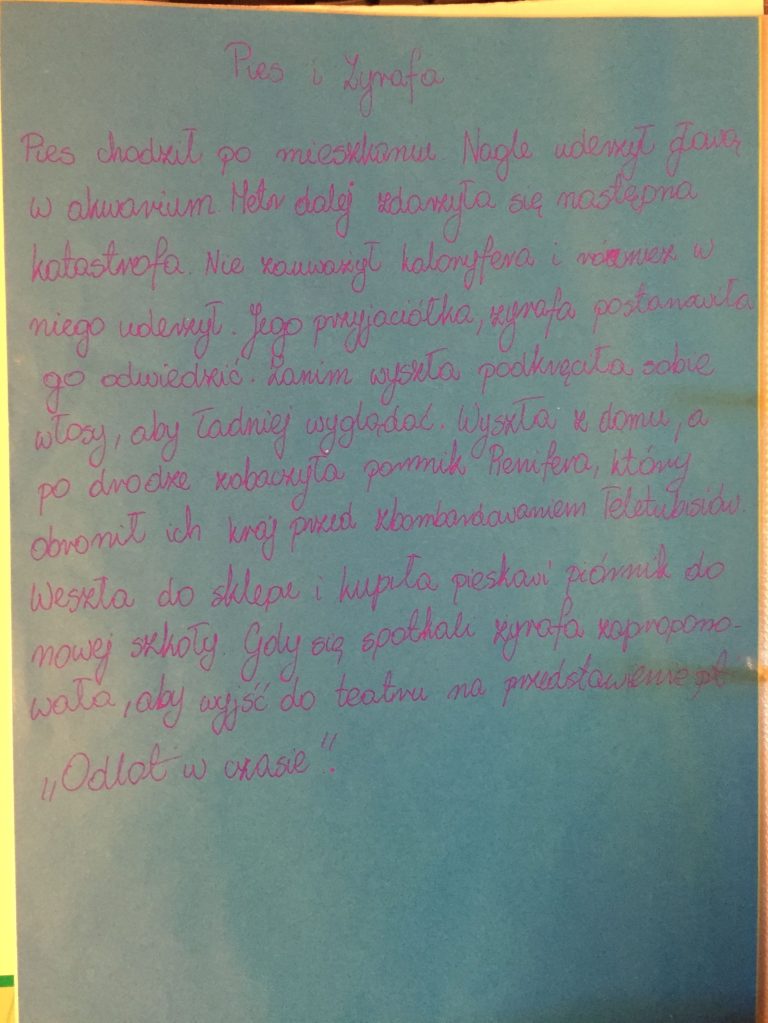 Pies i Żyrafa
Pies chodził po mieszkaniu. Nagle uderzył głową
w akwarium. Metr dalej zdarzyła się następna
katastrofa. Nie zauważył kaloryfera i również w
niego uderzył. Jego przyjaciółka, żyrafa postanowiła
go odwiedzić. Zanim wyszła podkręcała sobie
włosy, aby ładniej wyglądać. Wyszła z domu, a
po drodze zobaczyła pomnik Renifera, który
obronił ich kraj przed zbombardowaniem Teletubisiów.
Weszła do sklepe i kupiła pieskowi piórnik do
nowej szkoły. Gdy się spotkali żyrafa zapropono-
wała, aby wyjść do teatru na przedstawienie pt
„Odlot w czasie".